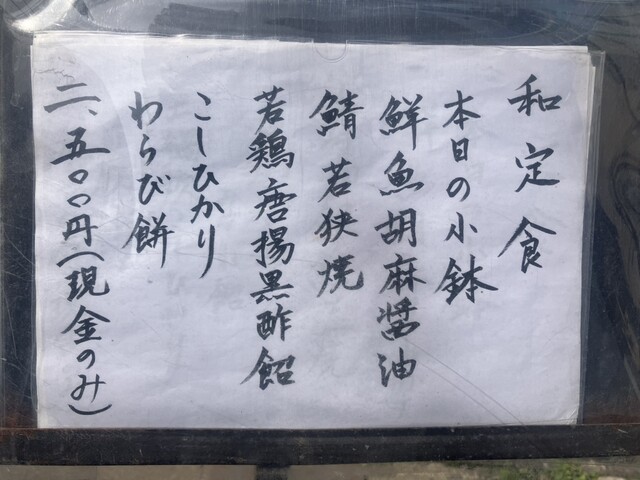 和定食
本日の小鉢
鮮魚胡麻醤油
鯖若狭焼
若鶏唐揚黒酢餡
こしひかり
わらび餅
二、五〇〇円(現金のみ)